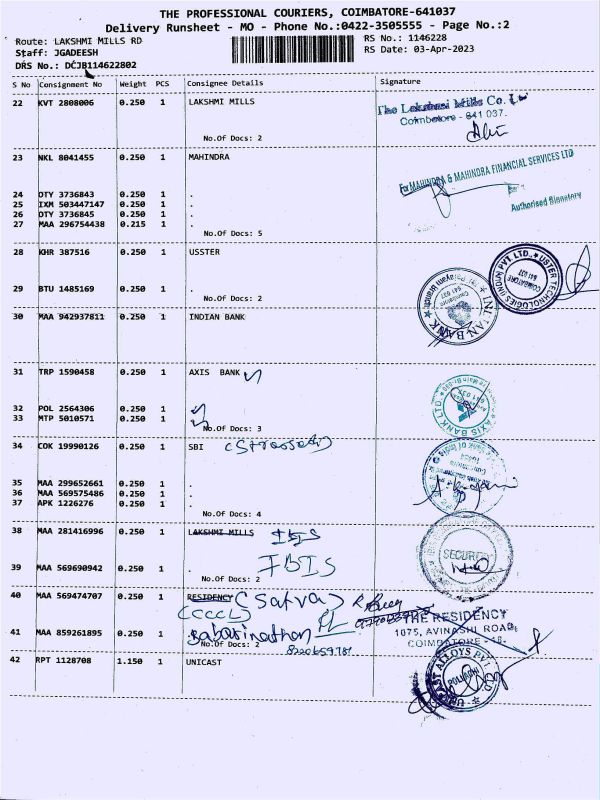 THE PROFESSIONAL COURIERS, COIMBATORE-641037
Delivery Runsheet - MO - Phone No.:0422-3505555 - Page No.:2
Route: LAKSHMI MILLS RD
RS No.: 1146228
Staff: JGADEESH
RS Date: 03-Apr-2023
DRS No.: DCJB114622802
S No Consignment No Weight PCS Consignee Details Signature
22 KVT 2808006 0.250 1 LAKSHMI MILLS
The Lakshmi Mills Co. Ltd
Coimbatore - 641 037.
No.Of Docs: 2
23 NKL 8041455 0.250 1 MAHINDRA
For MAHINDRA & MAHINDRA FINANCIAL SERVICES LTD
Authorised Signatory
24 DTY 3736843 0.250 1 .
25 IXM 503447147 0.250 1 .
26 DTY 3736845 0.250 1 .
27 MAA 296754438 0.215 1 .
No.Of Docs: 5
28 KHR 387516 0.250 1 USSTER
USTER TECHNOLOGIES (INDIA) PVT LTD.
COIMBATORE
641 037
29 BTU 1485169 0.250 1 .
No.Of Docs: 2
30 MAA 942937811 0.250 1 INDIAN BANK
INDIAN BANK
31 TRP 1590458 0.250 1 AXIS BANK
AXIS BANK LTD
32 POL 2564306 0.250 1
33 MTP 5010571 0.250 1
No.Of Docs: 3
34 COK 19990126 0.250 1 SBI
35 MAA 299652661 0.250 1 .
36 MAA 569575486 0.250 1 .
37 APK 1226276 0.250 1 .
No.Of Docs: 4
38 MAA 281416996 0.250 1 LAKSHMI MILLS
SECURE
39 MAA 569690942 0.250 1 . IBIS
No.Of Docs: 2
40 MAA 569474707 0.250 1 RESIDENCY (Satva)
(CCCL)
THE RESIDENCY
1075, AVINASHI ROAD,
COIMBATORE - 18.
41 MAA 859261895 0.250 1 Sabarinathan
No.Of Docs: 2
42 RPT 1128708 1.150 1 UNICAST
UNICAST ALLOYS PVT
POLLACHI